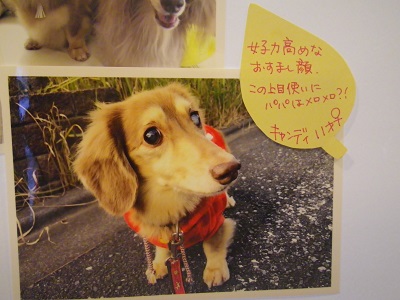 女子力高めな
おすまし顔。
この上目使いに
パパはメロメロ?!
キャンディ 8才♀